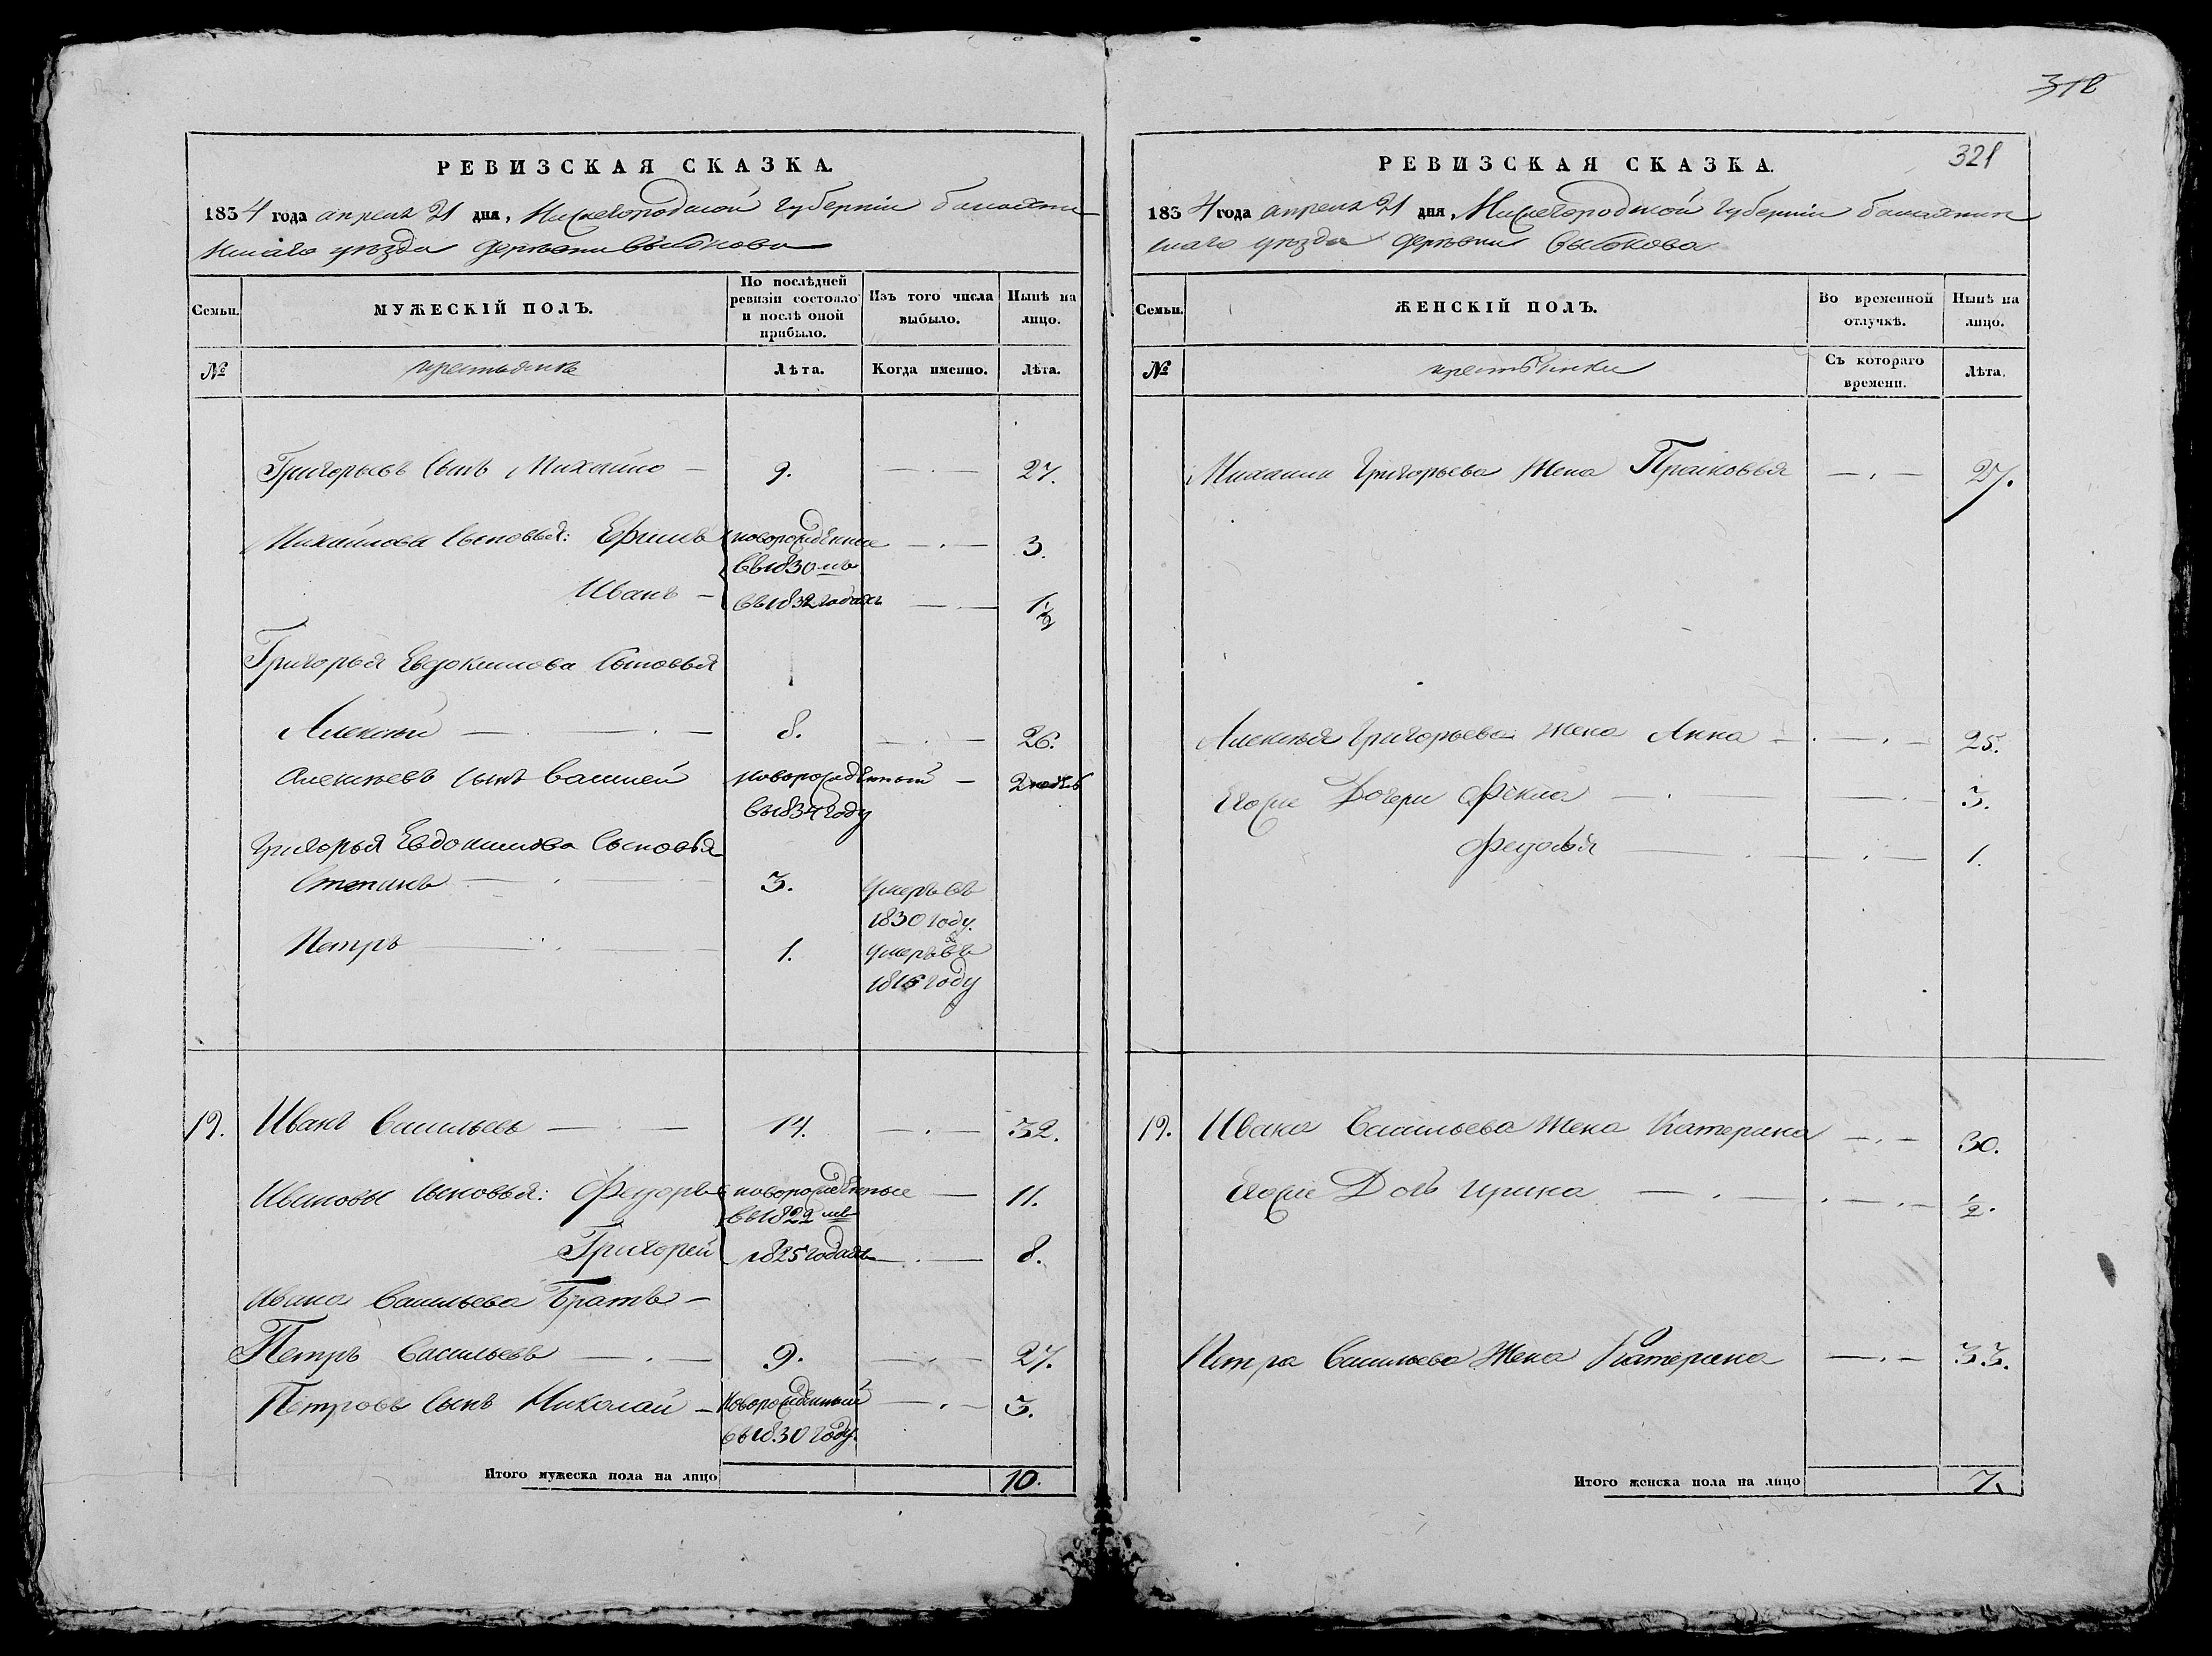 318
РЕВИЗСКАЯ СКАЗКА.
1834 года апреля 21 дня, Нижегородской губернiи балахнин
скаго уѣзда деревни Высоково
Семьи. МУЖЕСКIЙ ПОЛЪ. По послѣдней ревизiи состояло и послѣ оной прибыло. Изъ того числа выбыло. Нынѣ на лицо.
№ крестьянъ Лѣта. Когда именно. Лѣта.
Григорьевъ сынъ Михайло — 9. — . — 27.
Михайловы сыновья: Ефимъ новорожденные — . — 3.
въ 1830 мъ
Иванъ — въ 1832 годахъ — . — 1½
Григорья Евдокимова сыновья
Алексѣй — . — 8. — . — 26.
Алексѣевъ сынъ Василей новорожденный — 2 недѣль
въ 1834 году
Григорья Евдокимова сыновья
Степанъ — . — 3. умеръ въ
1830 году.
Петръ — . — 1. умеръ въ
году
19. Иванъ Васильевъ — — 14. — . — 32.
Ивановы сыновья: Федоръ новорожденные — 11.
въ 1822 мъ
Григорей 1825 годахъ — . — 8.
Ивана Васильева братъ —
Петръ Васильевъ — . — 9. — . — 27.
Петровъ сынъ Николай — новорожденный — . — 3.
въ 1830 году.
Итого мужеска пола на лицо 10.
РЕВИЗСКАЯ СКАЗКА. 321
1834 года апреля 21 дня, Нижегородской губернiи балахнин
скаго уѣзда деревни Высоково
Семьи. ЖЕНСКIЙ ПОЛЪ. Во временной отлучкѣ. Нынѣ на лицо.
№ крестьянки Съ котораго времени. Лѣта.
Михаила Григорьева жена Прасковья — . — 27.
Алексѣя Григорьева жена Анна — . — . — 25.
Егоже дочери Фекла — . — . — 3.
Федосья — . — . — 1.
19. Ивана Васильева жена Катерина — . — 30.
Егоже дочь Ирина — . — . — . — ½.
Петра Васильева жена Катерина — . — 33.
Итого женска пола на лицо 7.